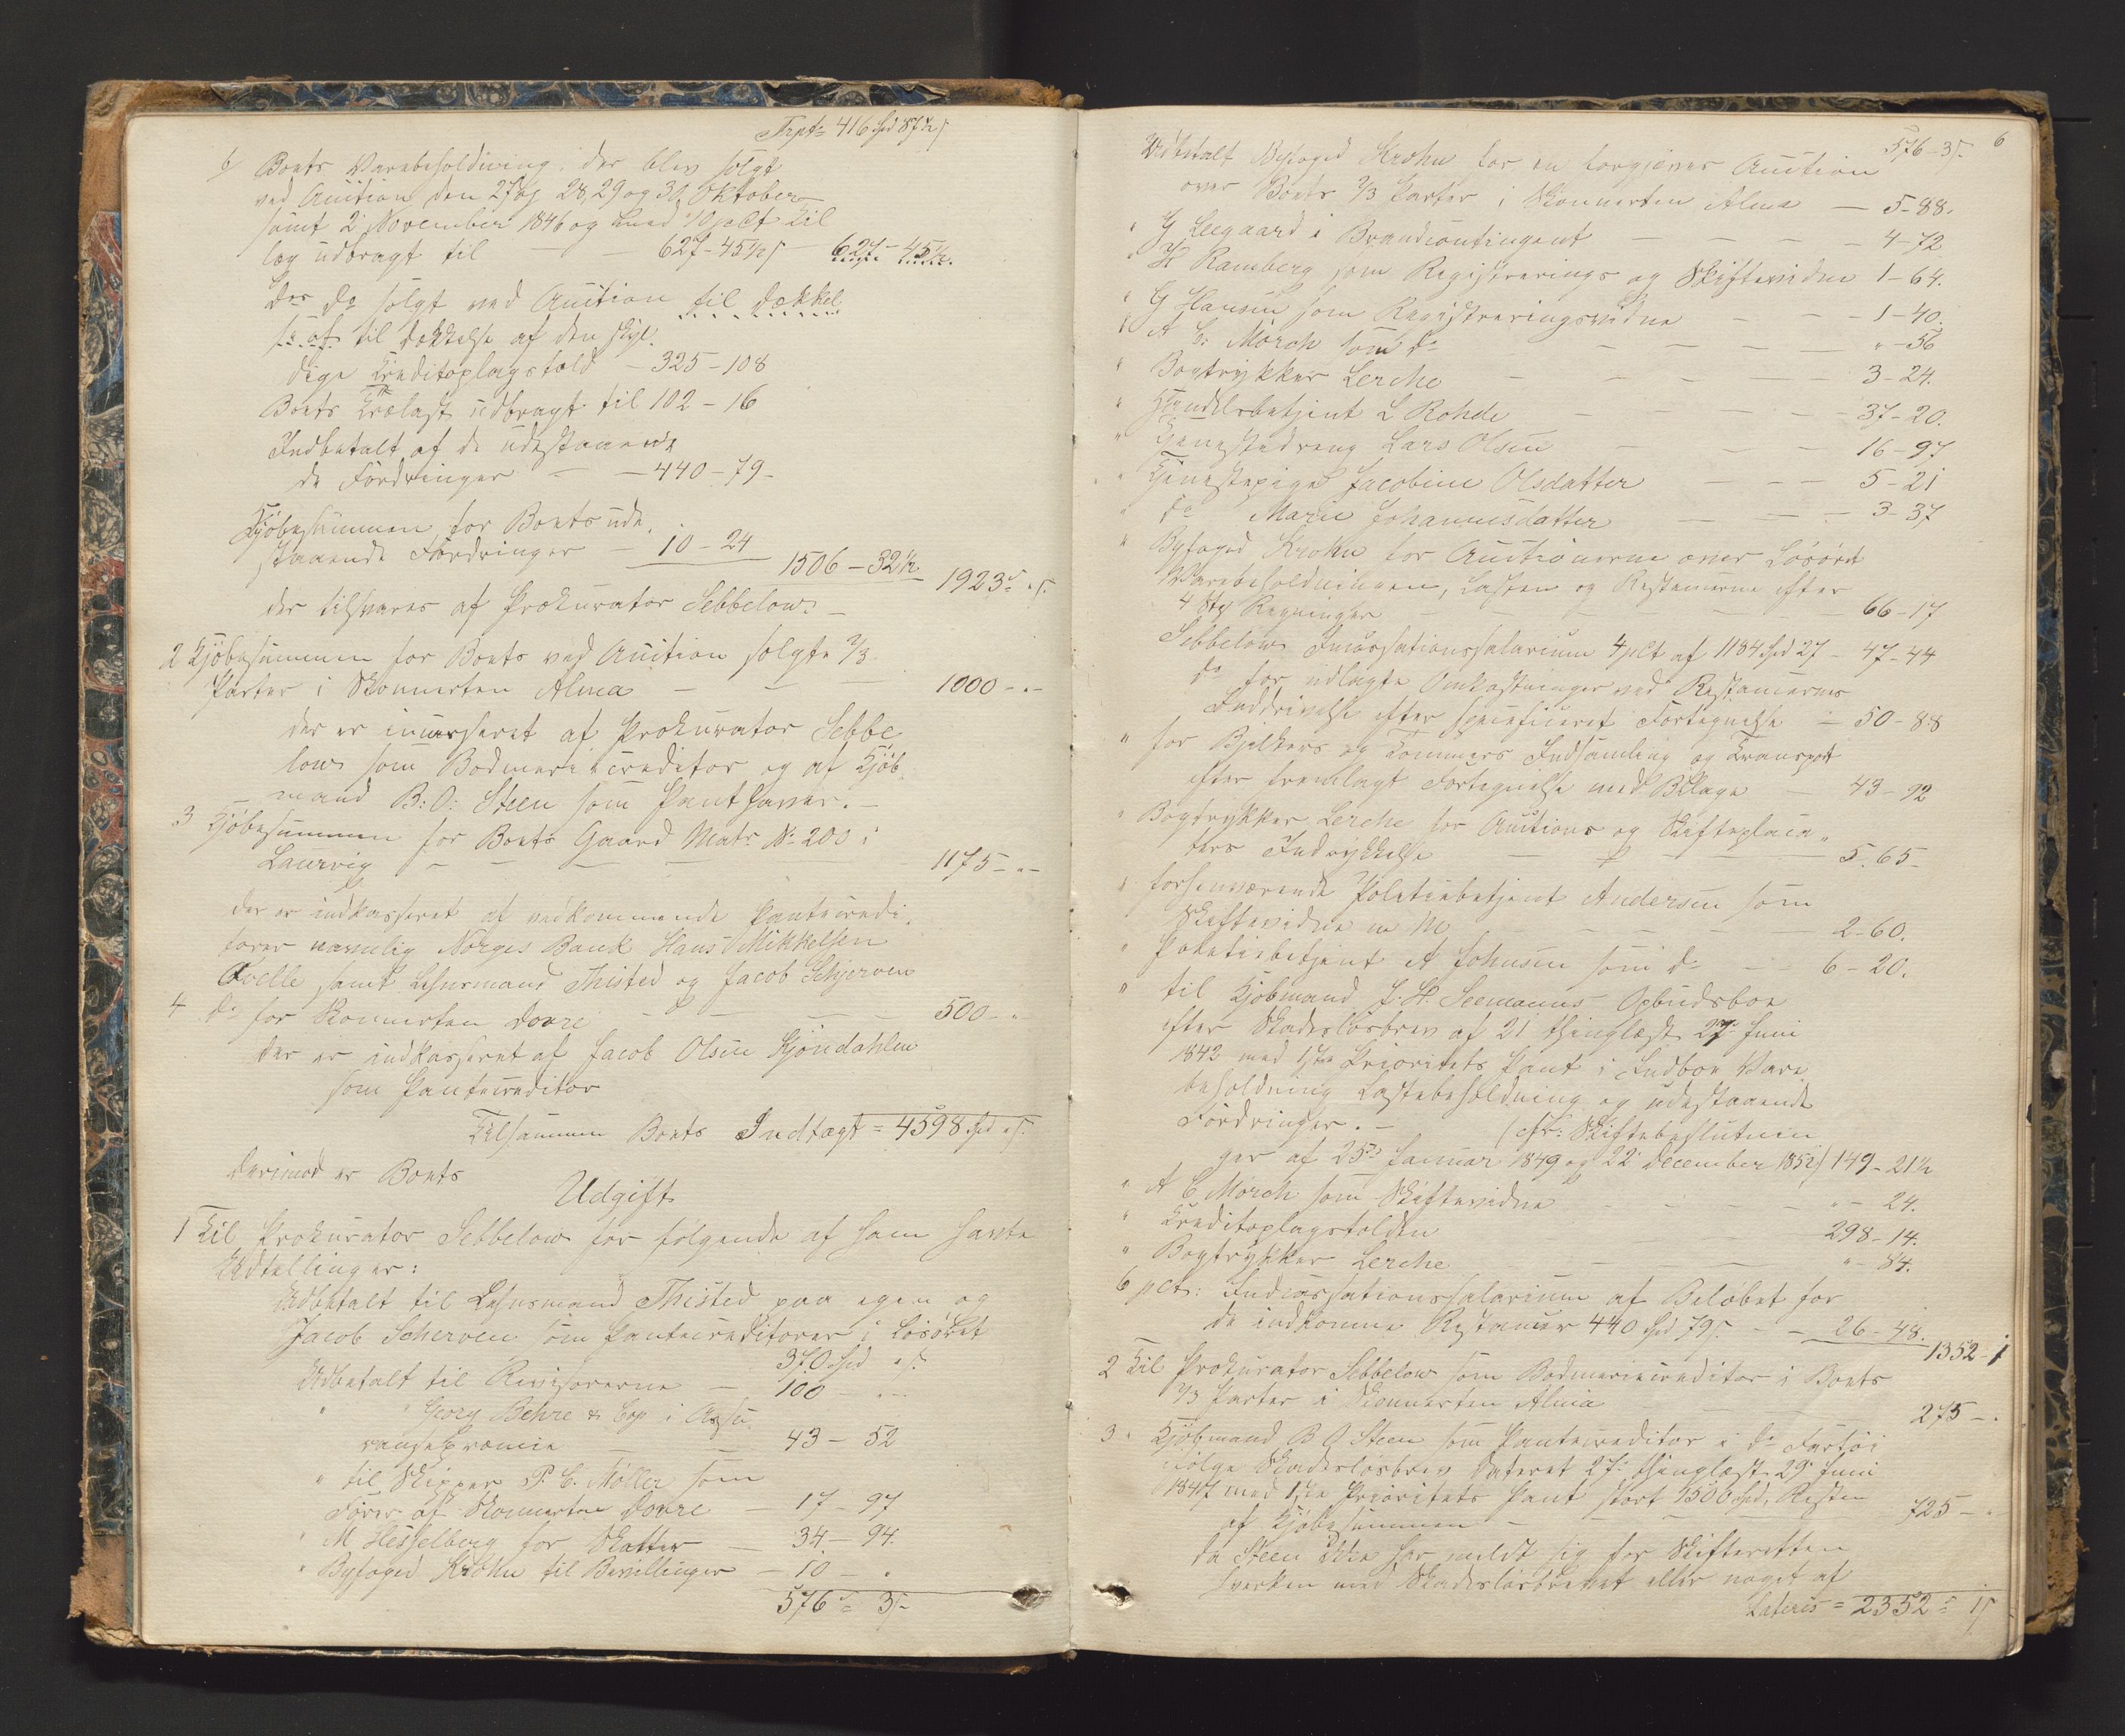 Trpt 416 Spd 87½ s
b/ Boets Varebeholdning, der blev solgt
ved Auction den 27de og 28, 29 og 31 Oktober
samt 2 November 1846 og med 10 pCt Til
læg udbragt til — — 627-45½ s 627-45½.
Der Do solgt ved Auction til Dækkel
se af til Dækkelse af den skyl,
dige Kreditoplagstold — 325-108
Boets Trælast udbragt til 102-16
Indbetalt af de udestaaende
de Fordringer — — 440-79-
Kjöbesummen for Boets ude,
staaende Fordringer — 10-24
1506-32½ 1923 " s.
der tilsvares af Prokurator Sebbelow. —
2 Kjöbesummen for Boets ved Auction solgte 2/3
Parter i Skonnerten Alma — — — 1000-"-
der er incasseret af Prokurator Sebbe
low som Bodmericreditor og af Kjöb,
mand B: O: Steen som Panthaver. —
3 Kjöbesummen for Boets Gaard Matr No 203 i
Laurvig — — — — 1175-"-
der er indkasseret af vedkommende Pantecredi,
torer nemlig Norges Bank Hans Mikkelsen
Qvelle samt Lehnsmand Thisted og Jacob Schjerven
4 Do for Skonnerten Dovre — — — — 500-"
der er indkasseret af Jacob Olsen Kjöndahlen
som Pantecreditor
Tilsammen Boets Indtægt = 4598 Spd " s.
Derimod er Boets
Udgift
1 Til Prokurator Sebbelow for følgende af ham havte
Udtellinger:
Udbetalt til Lehnsmand Thisted paa egen og
Jacob Scherven som Pantecreditorer i Lösöret
370 Spd " s.
Udbetalt til Revisorerne — 100 " —
" " Georg Behre & Cop i Assu,
rancepræmie — — 43-52
" til Skipper P. C. Möller som
Fører af Skonnerten Dovre — 17-97
" M Hesselberg for Skatter — 34-94.
" Byfoged Krohn til Bevillinger — 10-"
576 = 3 s
6
576-3 s.
Udbetalt Byfoged Krohn for en forgjæves Auction
over Boets 2/3 Parter i Skonnerten Alma — 5-88.
" G Leegaard i Brandcontingent — — — — 4-72
" H Ramberg som Registrerings og Skiftevidne 1-64.
" G Hansen som Registreringsvidne — — — 1-40.
" A C. Mörch som do — — — — "-56
" Bogtrykker Lerche — — — — 3-24.
" Handelsbetjent L Rohde — — — 37-20.
" Tjenestedreng Lars Olsen — — — 16-97
" Tjenestepige Jacobine Olsdatter — — — 5-21
" do Marie Johannesdatter — — — 3-37
" Byfoged Krohn for Auctionerne over Lösöret
Varebeholdningen, Lasten og Restancerne efter
4 Stk Regninger — — — — 66-17
Sebbelows Incassationssalarium 4 pCt af 1184 Spd 27 — 47-44
do for udlagte Omkostninger ved Restancernes
Inddrivelse efter specificeret Fortegnelse — 50-88
" for Bjelkers og Tömmers Indsamling og Transport
efter fremlagt Fortegnelse med Bilage — 43-92
" Bogtrykker Lerche for Auctions og Skifteplaca,
ters Indrykkelse — — — — 5.65-
" forhenværende Politiebetjent Andersen som
Skiftevidne m M — — — — 2-60.
" Politiebetjent A Johnsen som do — 6-20.
" til Kjöbmand J. H. Seemanns Opbudsboe
efter Skadeslösbrev af 21 thinglæst 27 Juni
1842 med 1ste Prioritets Pant i Indboe Vare
beholdning Lastebeholdning og udestaaende
Fordringer. — (cfr: Skiftebeslutnin
ger af 25de Januar 1849 og 22 December 1852) 149-21½
" A C Mörch som Skiftevidne — — — "-24.
" Kreditoplagstolden — — — 298-14.
" Bogtrykker Lerche — — — "-84.
6 pCt: Indcassationssalarium af Belöbet for
de indkomne Restancer 440 Spd 79 s. — 26-48.
1352-1
2 Til Prokurator Sebbelow som Bodmeriecreditor i Boets
2/3 Parter i Skonnerten Alma — — — 275-.
3 " Kjöbmand B O Steen som Pantecreditor i do Fartöi
ifølge Skadeslösbrev dateret 27 thinglæst 29 Juni
1847 med 1ste Prioritets Pant stort 1500 Spd, Resten
af Kjöbesummen — — — — 725-"
da Steen ikke har meldt sig for Skifteretten
hverken med Skadeslösbrevet eller noget af
Lateris = 2352 = 1 s